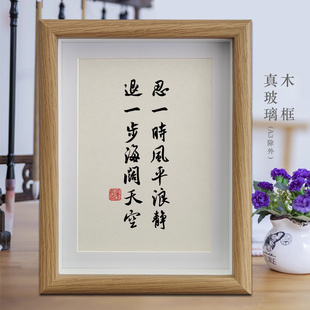 忍一時風平浪靜
退一步海闊天空
木框
真玻璃(A3除外)